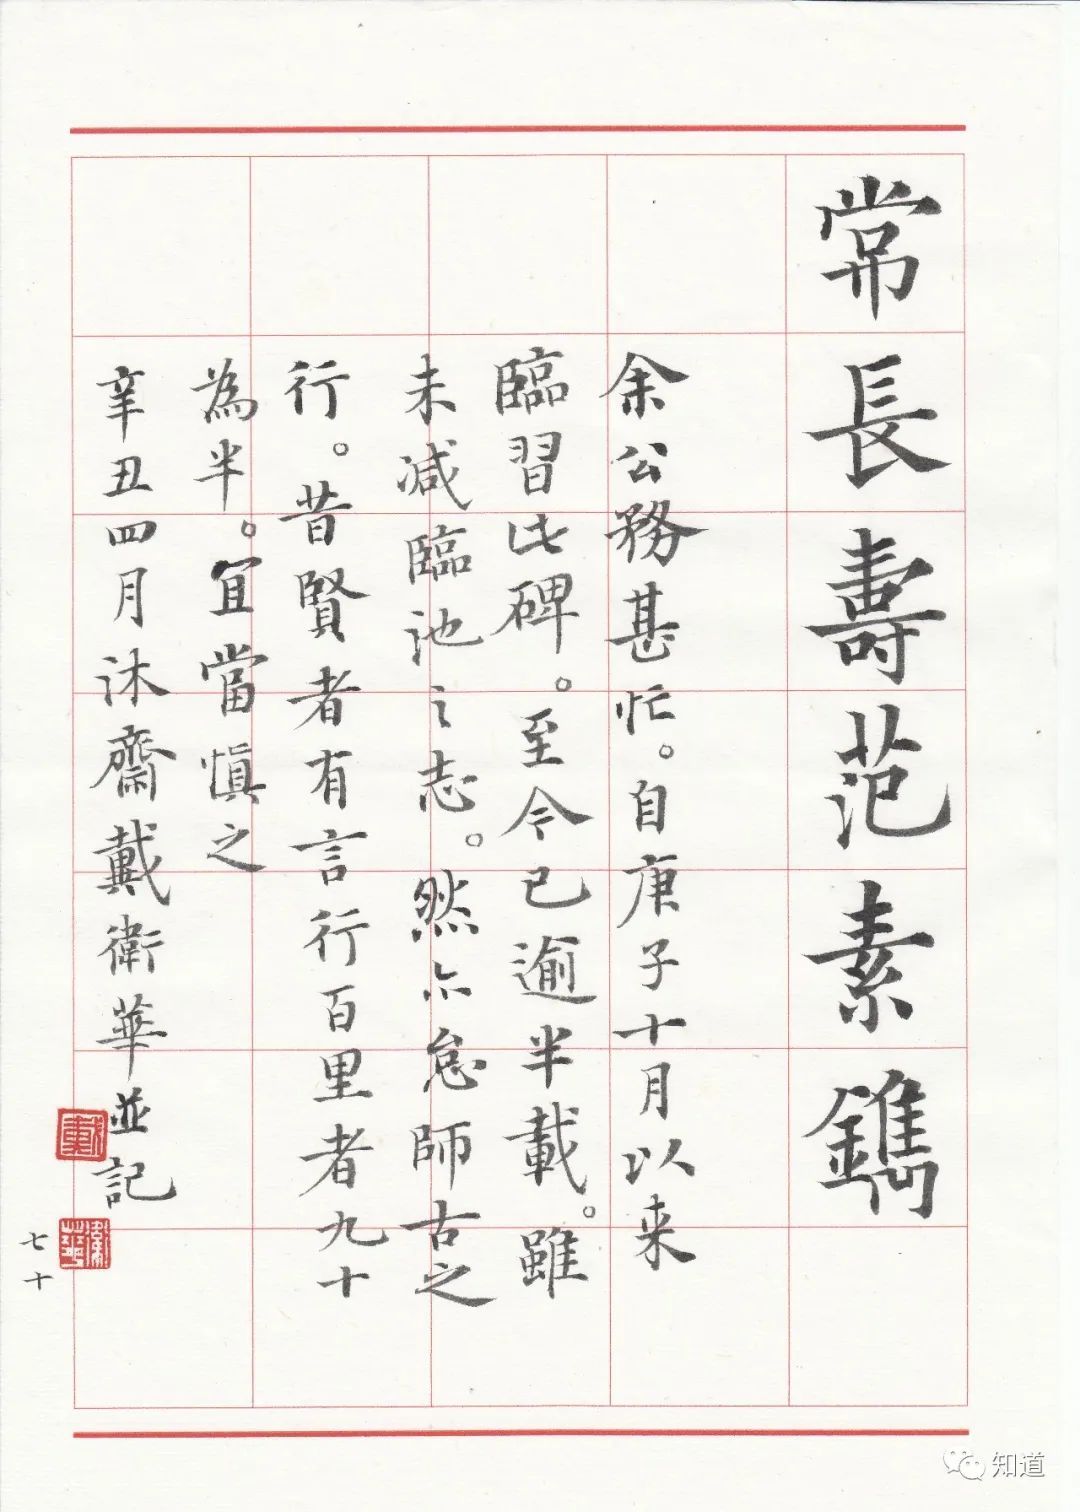 常長壽范素鐫
余公務甚忙。自庚子十月以来
臨習此碑。至今已逾半載。雖
未減臨池之志。然亦怠師古之
行。昔賢者有言行百里者九十
為半。宜當慎之
辛丑四月沐齋戴衛華並記
戴
衛華
七十
知道